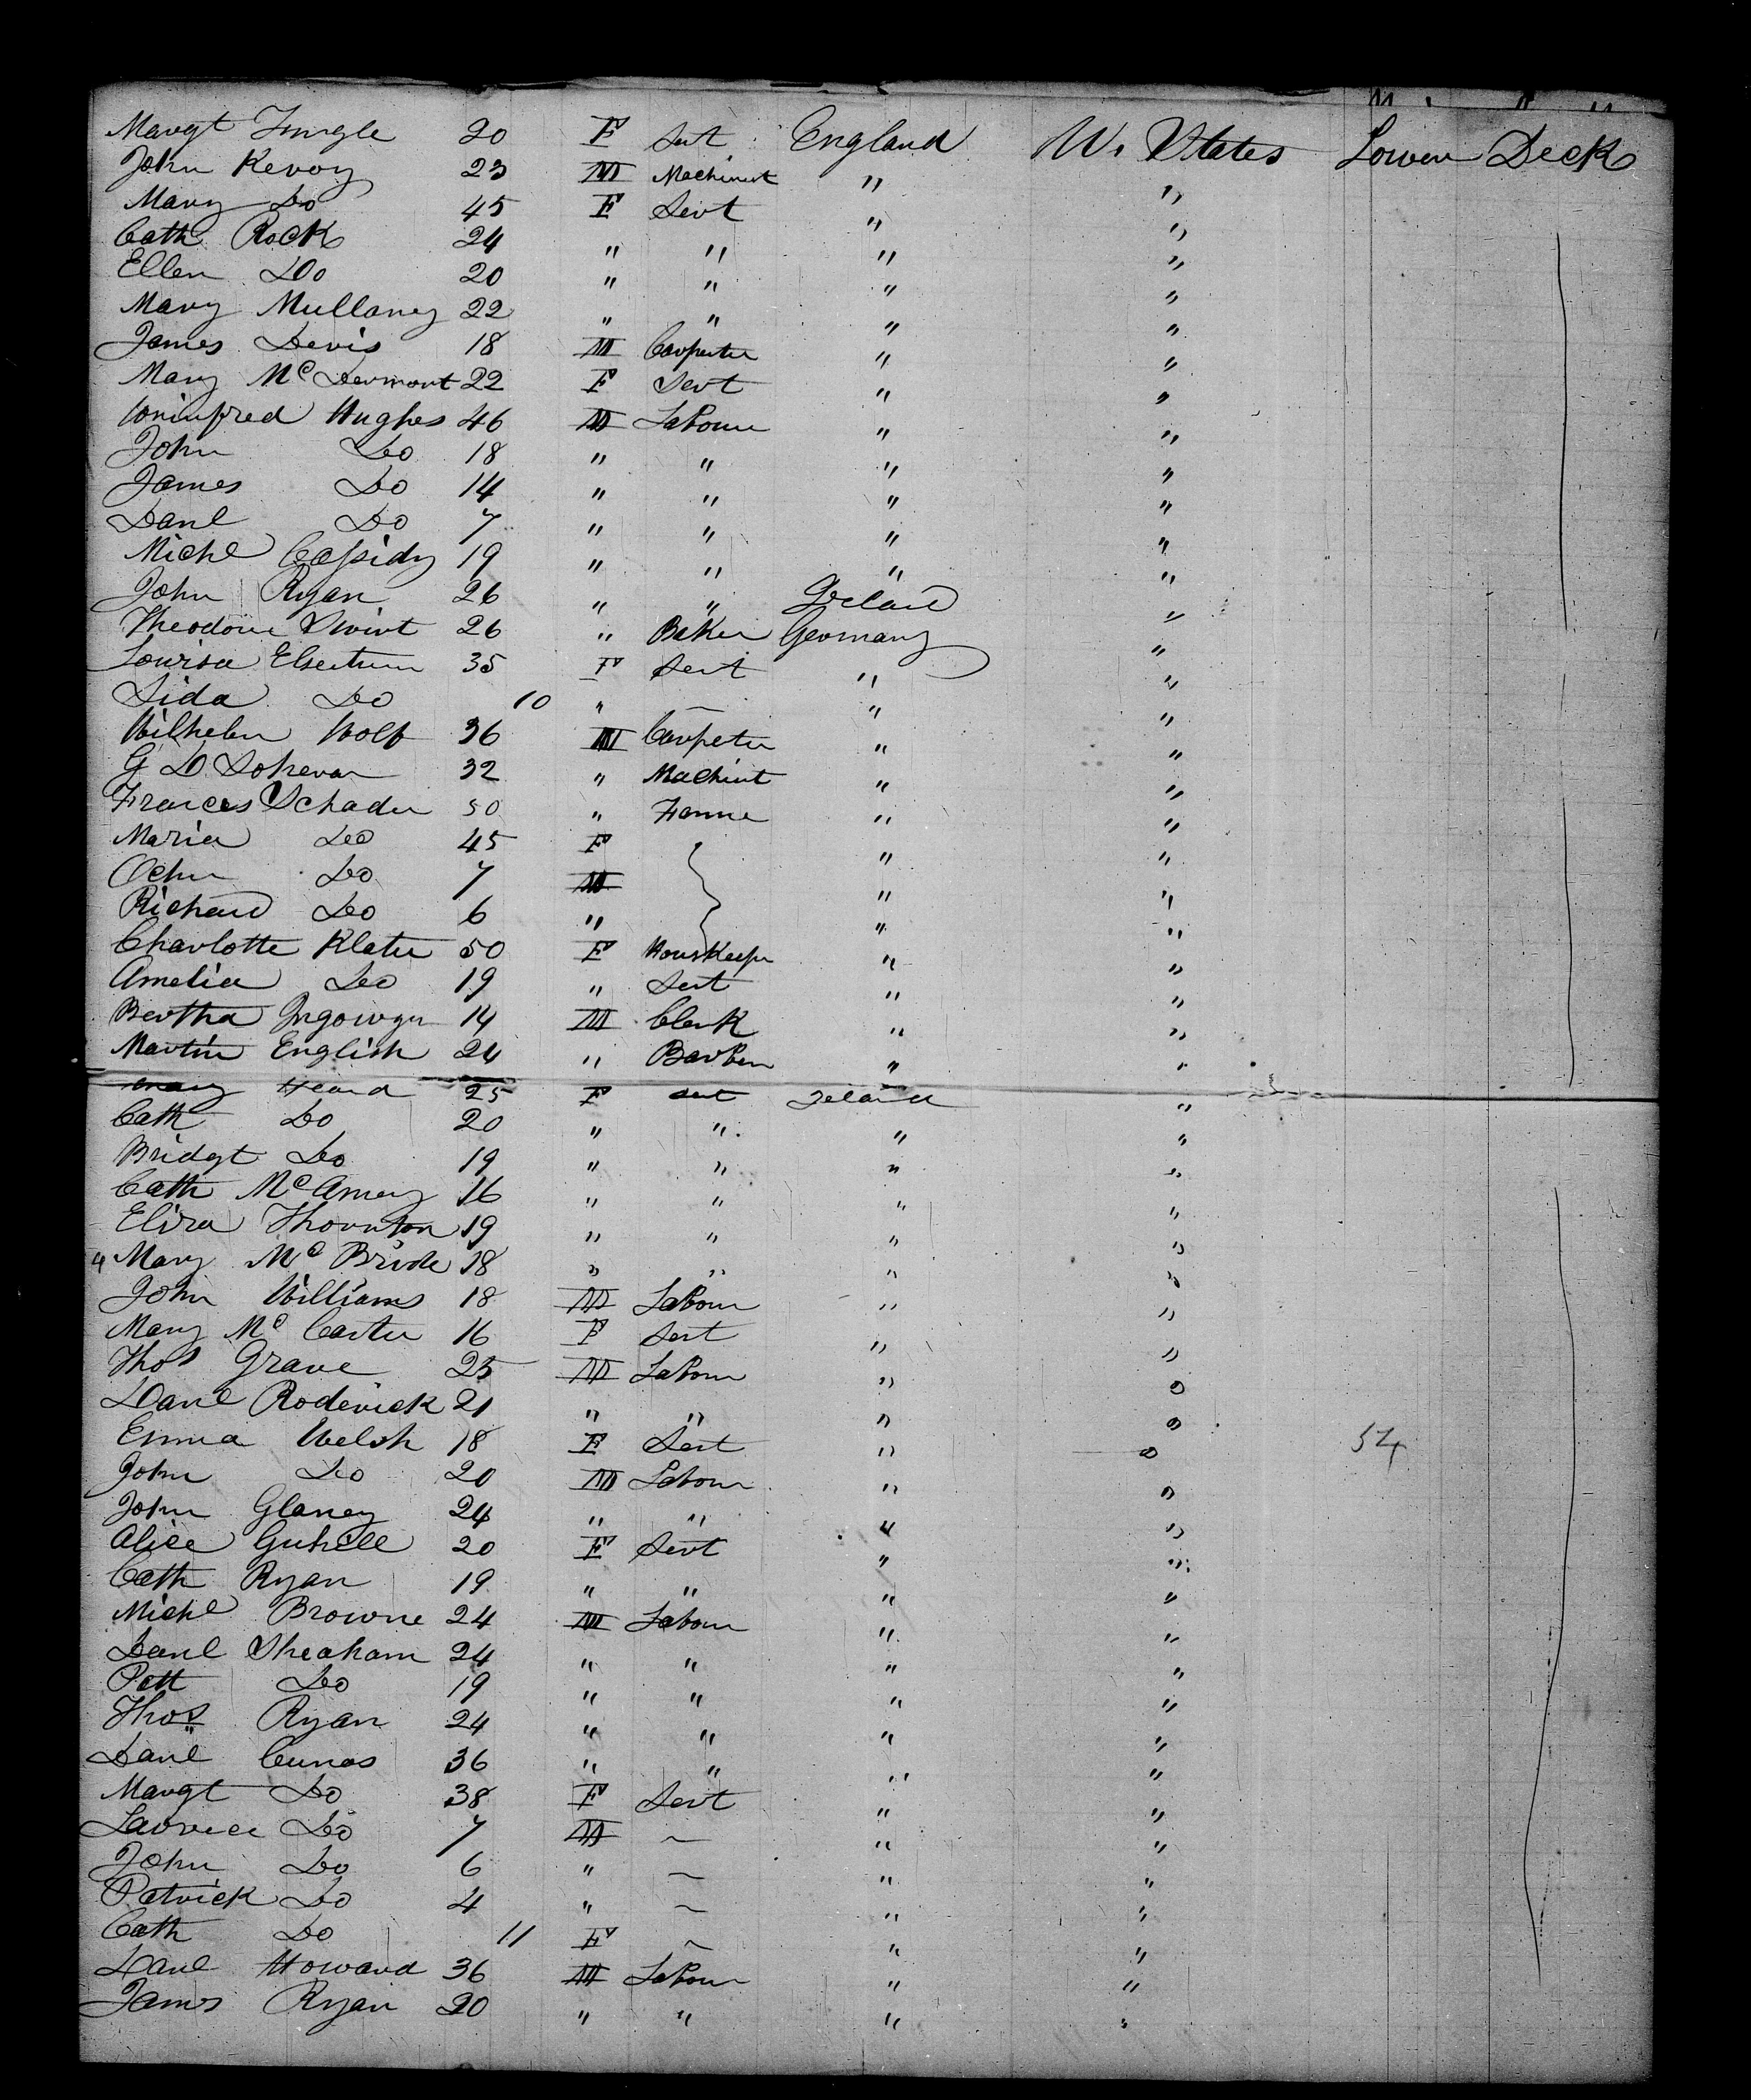 Margt Tingle 20 F Sert England U. States Lower Deck
John Kevoy 23 M Machinist " "
Mary Do 45 F Servt " "
Cath Rock 24 " " " "
Ellen Do 20 " " " "
Mary Mullaney 22 " " " "
James Devis 18 M Carpenter " "
Mary McDermont 22 F Servt " "
Winifred Hughes 46 M Labour " "
John Do 18 " " " "
James Do 14 " " " "
Danl Do 7 " " " "
Michl Cassidy 19 " " " "
John Ryan 26 " " Ireland "
Theodore Swint 26 " Baker Germany "
Louisa 35 F Sert " "
Lida Do 10 " — " "
Wilhelm Wolf 36 M Carpeter " "
G D 32 " Machinst " "
Frances Schader 50 " Farmer " "
Maria Do 45 F " "
Do 7 M " "
Richard Do 6 " " "
Charlotte Klater 50 F Houskeeper " "
Amelia Do 19 " Sert " "
Bertha 14 M Clerk " "
Martin English 24 " Barber " "
Mary Heard 25 F Sert Ireland "
Cath Do 20 " " " "
Bridgt Do 19 " " " "
Cath McAmey 16 " " " "
Eliza Thornton 19 " " " "
Mary McBride 18 " " " "
John Williams 18 M Labour " "
Mary McCarter 16 F Sert " "
Thos Grave 25 M Labour " "
Danl Roderick 21 " " " "
Emma Welsh 18 F Sert " " 54
John Do 20 M Labour " "
John Glaney 24 " " " "
Alice Guhill 20 F Servt " "
Cath Ryan 19 " " " "
Michl Browne 24 M Labour " "
Danl Sheaham 24 " " " "
Patt Do 19 " " " "
Thos Ryan 24 " " " "
Danl Cunas 36 " " " "
Margt Do 38 F Servt " "
Do 7 M — " "
John Do 6 " — " "
Patrick Do 4 " — " "
Cath Do 11 F — " "
Danl Howard 36 M Labour " "
James Ryan 20 " " " "